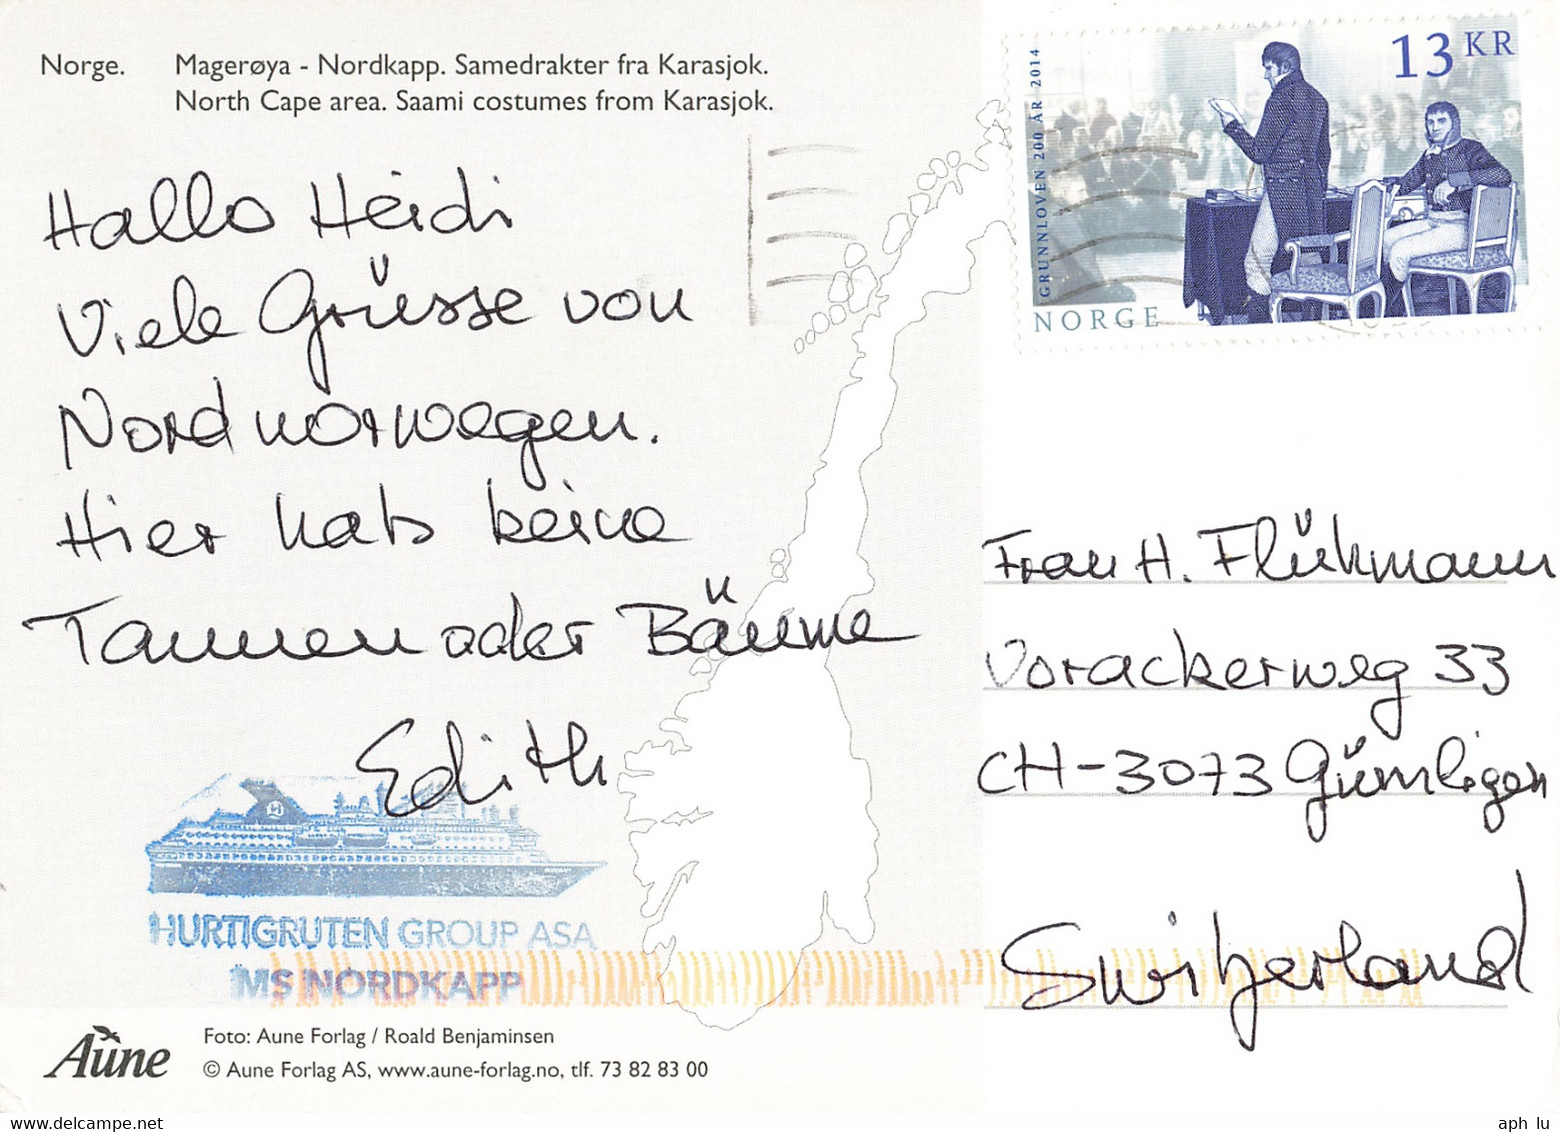 Norge. Magerøya - Nordkapp. Samedrakter fra Karasjok.
North Cape area. Saami costumes from Karasjok.
13 KR
GRUNNLOVEN 200 ÅR 2014
NORGE
Hallo Heidi
Viele Grüsse von
Nordnorwegen.
Hier hats keine
Tannen oder Bäume
Edith
Frau H. Flühmann
Vorackerweg 33
CH-3073 Gümligen
Switzerland
HURTIGRUTEN GROUP ASA
MS NORDKAPP
Aune
Foto: Aune Forlag / Roald Benjaminsen
© Aune Forlag AS, www.aune-forlag.no, tlf. 73 82 83 00
aph lu